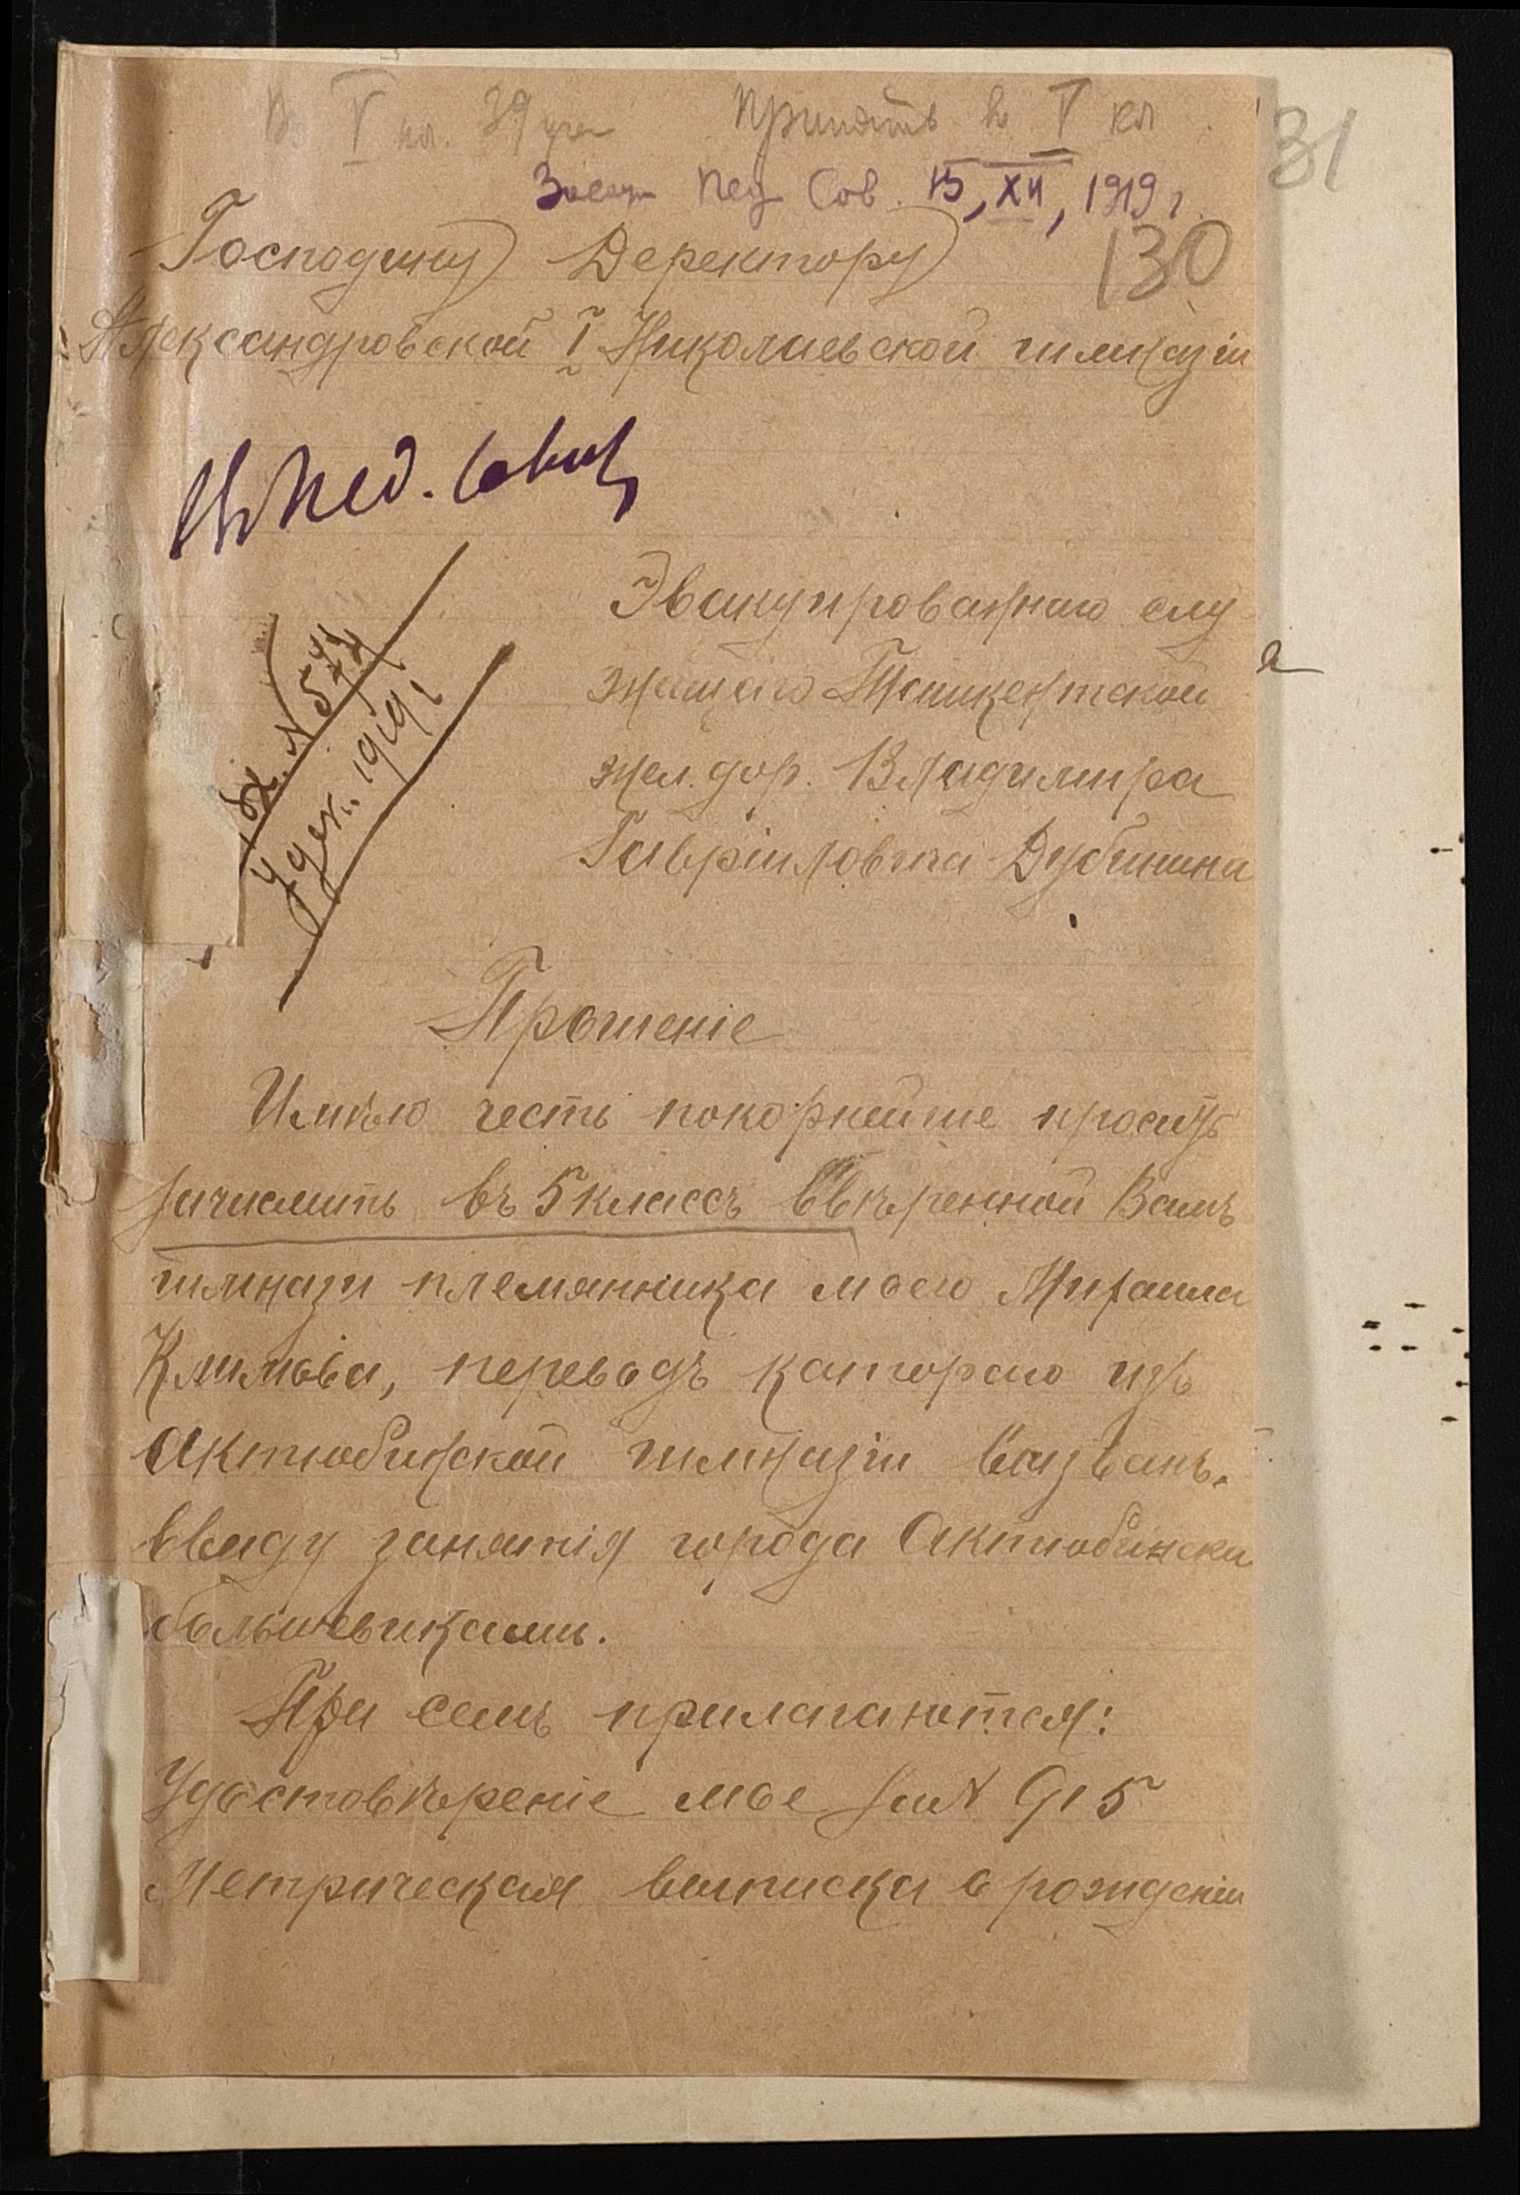 Въ V кл. 39 уч. Принять въ V кл
31
Засед Пед Сов. 15, XII, 1919 г.
Господину Деректору
130
Александровской I Николаевской гимназіи
Въ пед. совѣтъ
Эвакуированнаго слу
жащаго Ташкентской
жел. дор. Владимира
Гавріиловича Дубинина
Вх. N 544
9 дек. 1919 г
Прошеніе
Имѣю честь покорнейше просить
зачислить въ 5 классъ ввѣренной Вамъ
гимназіи племянника моего Михаила
Климова, переводъ каторого изъ
Актюбинской гимназіи вызванъ
ввиду занятія города Актюбинска
большевиками.
При семъ прилагаются:
Удостовѣреніе мое за N 915
Метрическая выписка о рожденіи